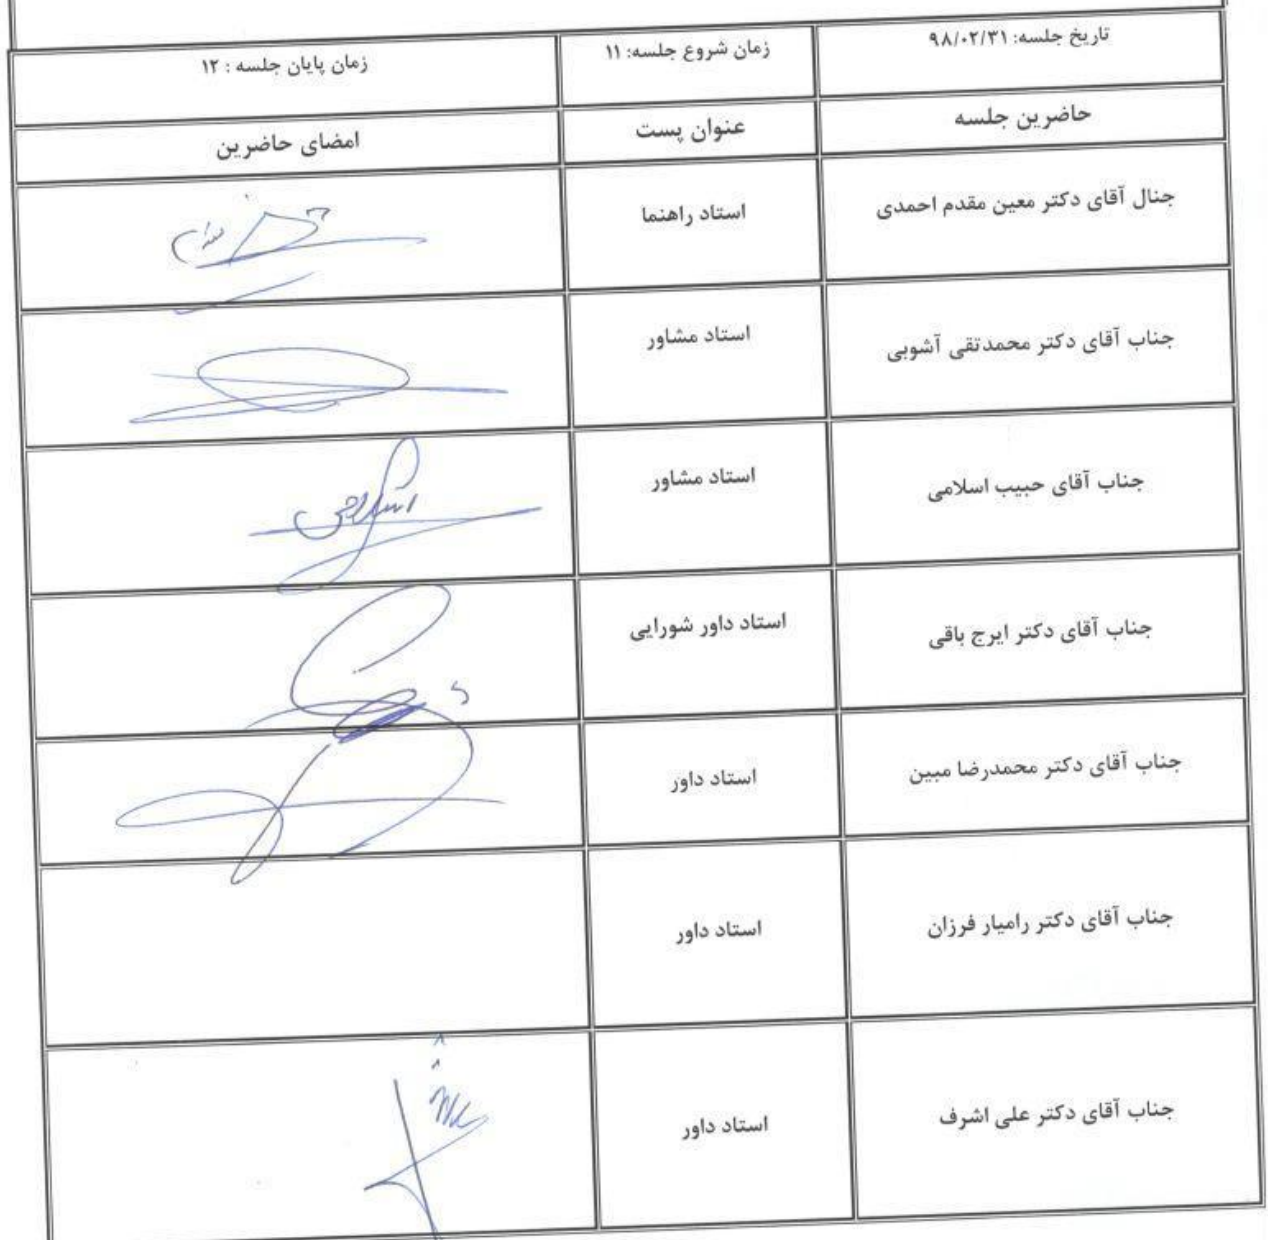 تاریخ جلسه: ۹۸/۰۲/۳۱ زمان شروع جلسه: ۱۱ زمان پایان جلسه : ۱۲
حاضرین جلسه عنوان پست امضای حاضرین
جنال آقای دکتر معین مقدم احمدی استاد راهنما
جناب آقای دکتر محمدتقی آشوبی استاد مشاور
جناب آقای حبیب اسلامی استاد مشاور اسلامی
جناب آقای دکتر ایرج باقی استاد داور شورایی
جناب آقای دکتر محمدرضا مبین استاد داور
جناب آقای دکتر رامیار فرزان استاد داور
جناب آقای دکتر علی اشرف استاد داور